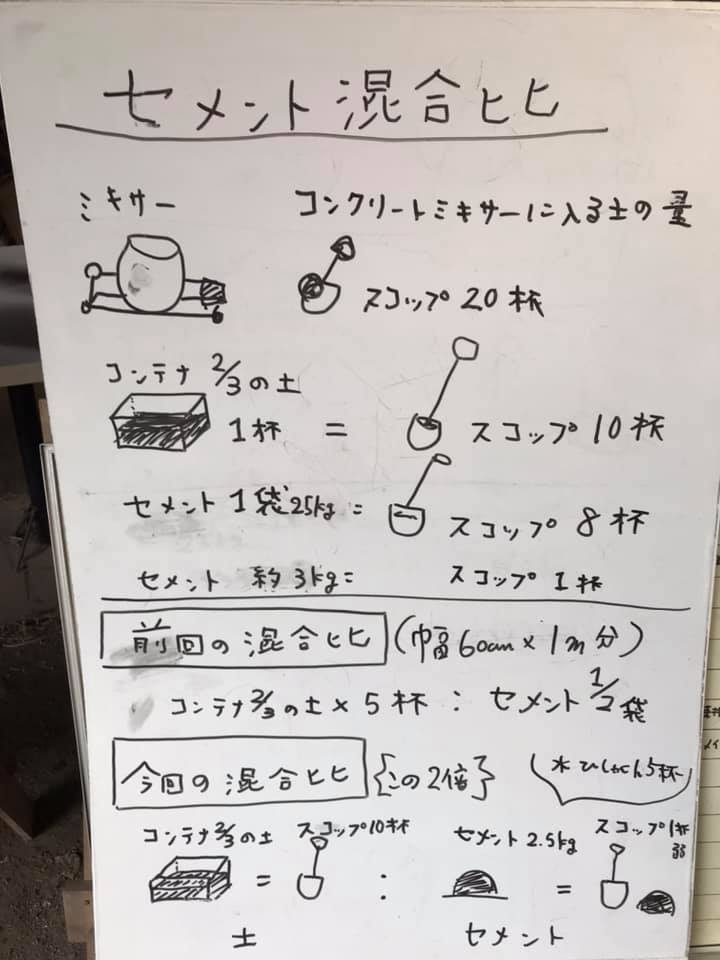 セメント混合比
ミキサー
コンクリートミキサーに入る土の量
スコップ 20杯
コンテナ 2/3の土
1杯 = スコップ 10杯
セメント 1袋 25kg = スコップ 8杯
セメント 約3kg= スコップ 1杯
前回の混合比 (巾幅60cm×1m分)
コンテナ2/3の土×5杯 : セメント1/2袋
今回の混合比 {この2倍}
(水ひしゃく5杯)
コンテナ2/3の土 スコップ10杯 セメント2.5kg スコップ1杯弱
= : =
土 セメント